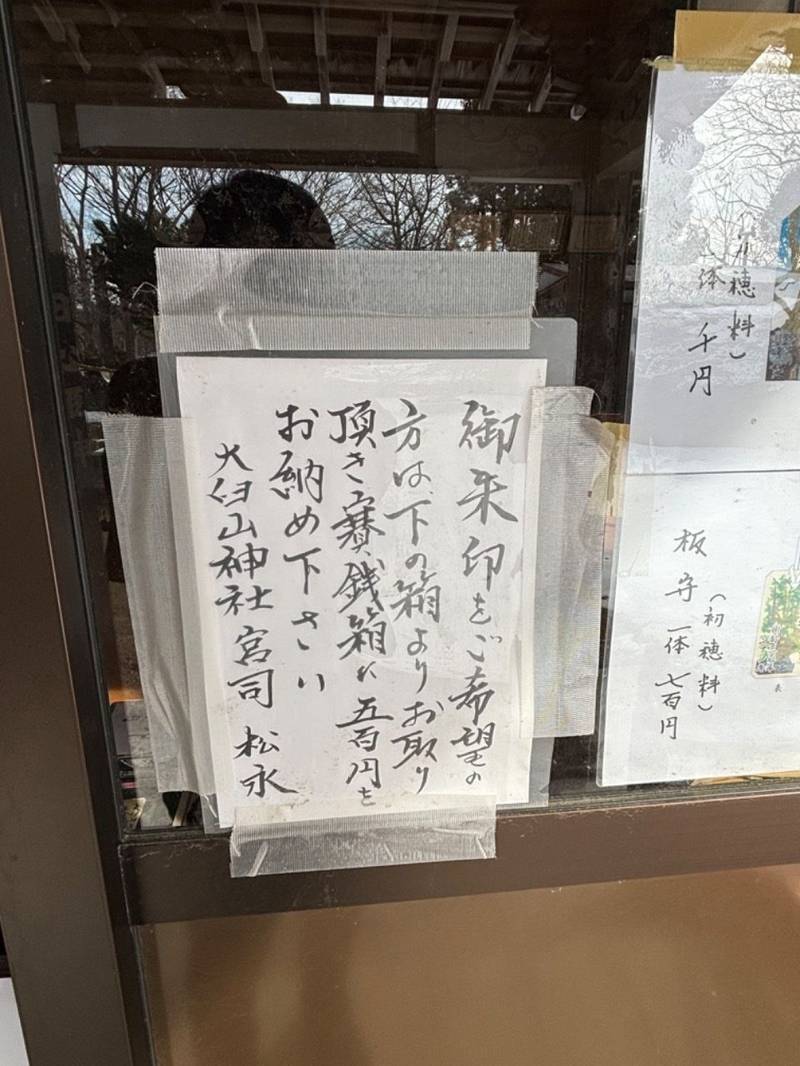 御朱印をご希望の
方は、下の箱よりお取り
頂き賽銭箱に五百円を
お納め下さい
大臼山神社 宮司 松永
初穂料)
一体 千円
板守
(初穂料)
一体 七百円